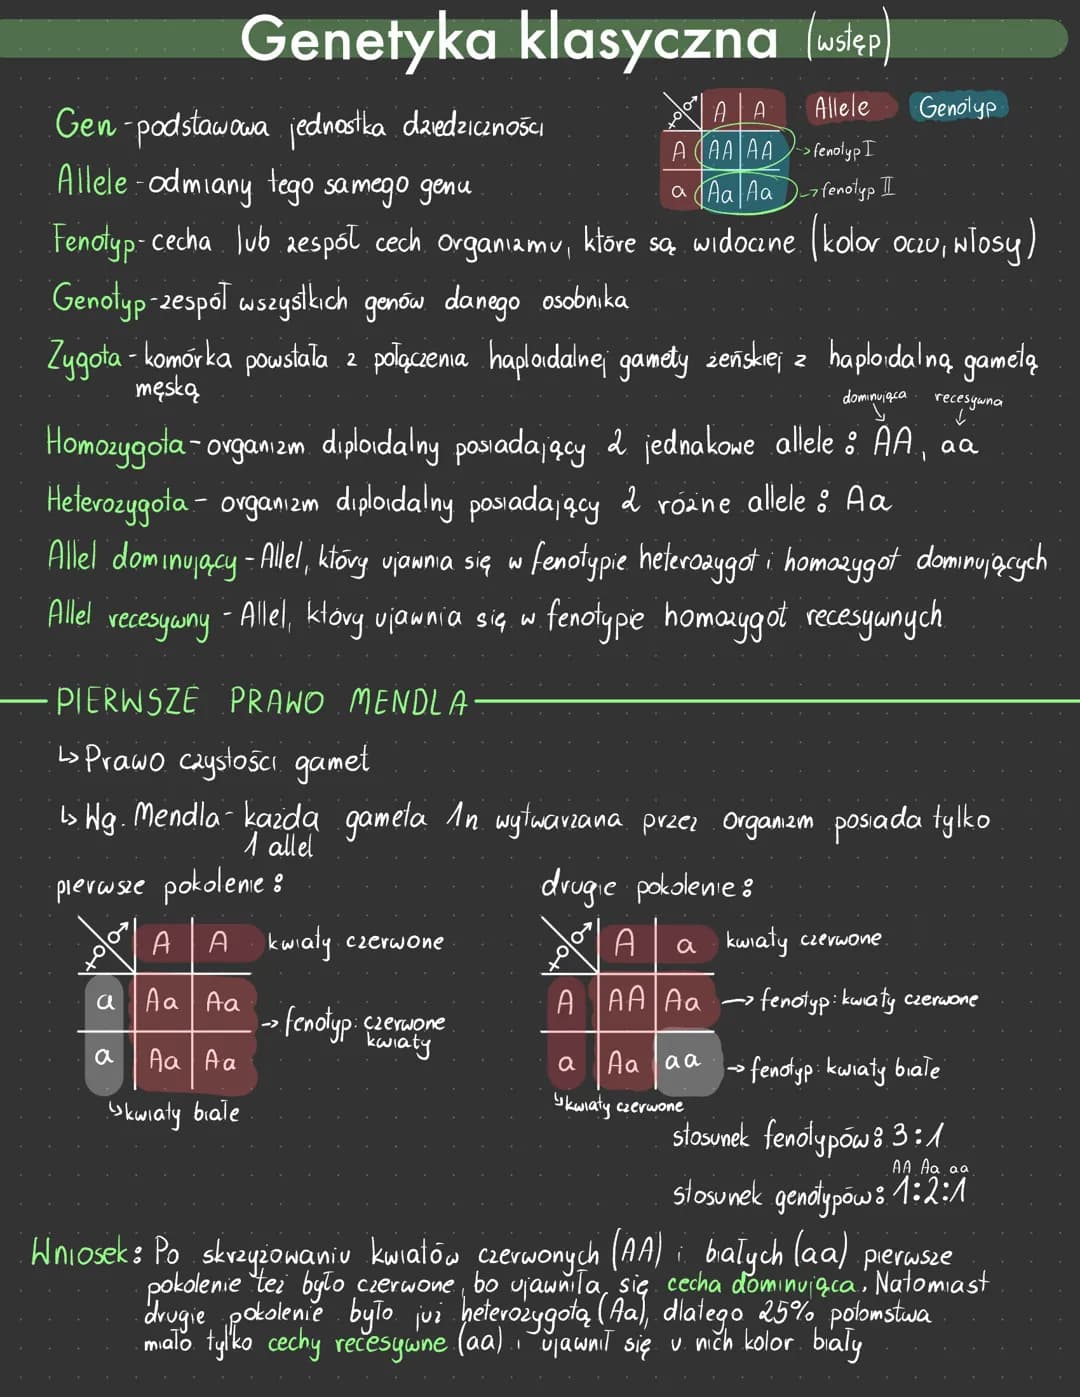 Genetyka klasyczna (wstęp)
Gen - podstawowa jednostka dziedziczności
A A Allele Genotyp
A AA AA -> fenotyp I
a Aa Aa -> fenotyp II
Allele - odmiany tego samego genu
Fenotyp - cecha lub zespół cech organizmu, które są widoczne (kolor oczu, włosy)
Genotyp - zespół wszystkich genów danego osobnika
Zygota - komórka powstała z połączenia haploidalnej gamety żeńskiej z haploidalną gametą
męską
dominująca recesywna
Homozygota - organizm diploidalny posiadający 2 jednakowe allele: AA, aa
Heterozygota - organizm diploidalny posiadający 2 różne allele: Aa
Allel dominujący - Allel, który ujawnia się w fenotypie heterozygot i homozygot dominujących
Allel recesywny - Allel, który ujawnia się w fenotypie homozygot recesywnych
PIERWSZE PRAWO MENDLA
↳ Prawo czystości gamet
↳ Wg. Mendla - każda gameta 1n wytwarzana przez organizm posiada tylko
1 allel
pierwsze pokolenie:
♀ ♂ A A kwiaty czerwone
a Aa Aa
-> fenotyp: czerwone
kwiaty
a Aa Aa
↳ kwiaty białe
drugie pokolenie:
♀ ♂ A a kwiaty czerwone
A AA Aa -> fenotyp: kwiaty czerwone
a Aa aa -> fenotyp: kwiaty białe
↳ kwiaty czerwone
stosunek fenotypów: 3:1
AA Aa aa
stosunek genotypów: 1:2:1
Wniosek: Po skrzyżowaniu kwiatów czerwonych (AA) i białych (aa) pierwsze
pokolenie też było czerwone, bo ujawniła się cecha dominująca. Natomiast
drugie pokolenie było już heterozygotą (Aa), dlatego 25% potomstwa
miało tylko cechy recesywne (aa) i ujawnił się u nich kolor biały